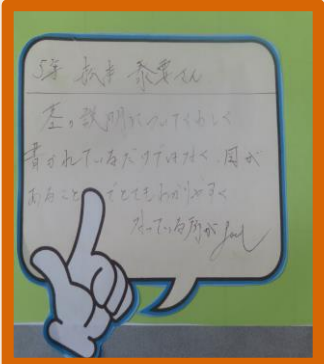 5年 泰要さん
茎の説明がついてくわしく
書かれているだけではなく、図が
あること でとてもわかりやすく
なっている所がgood